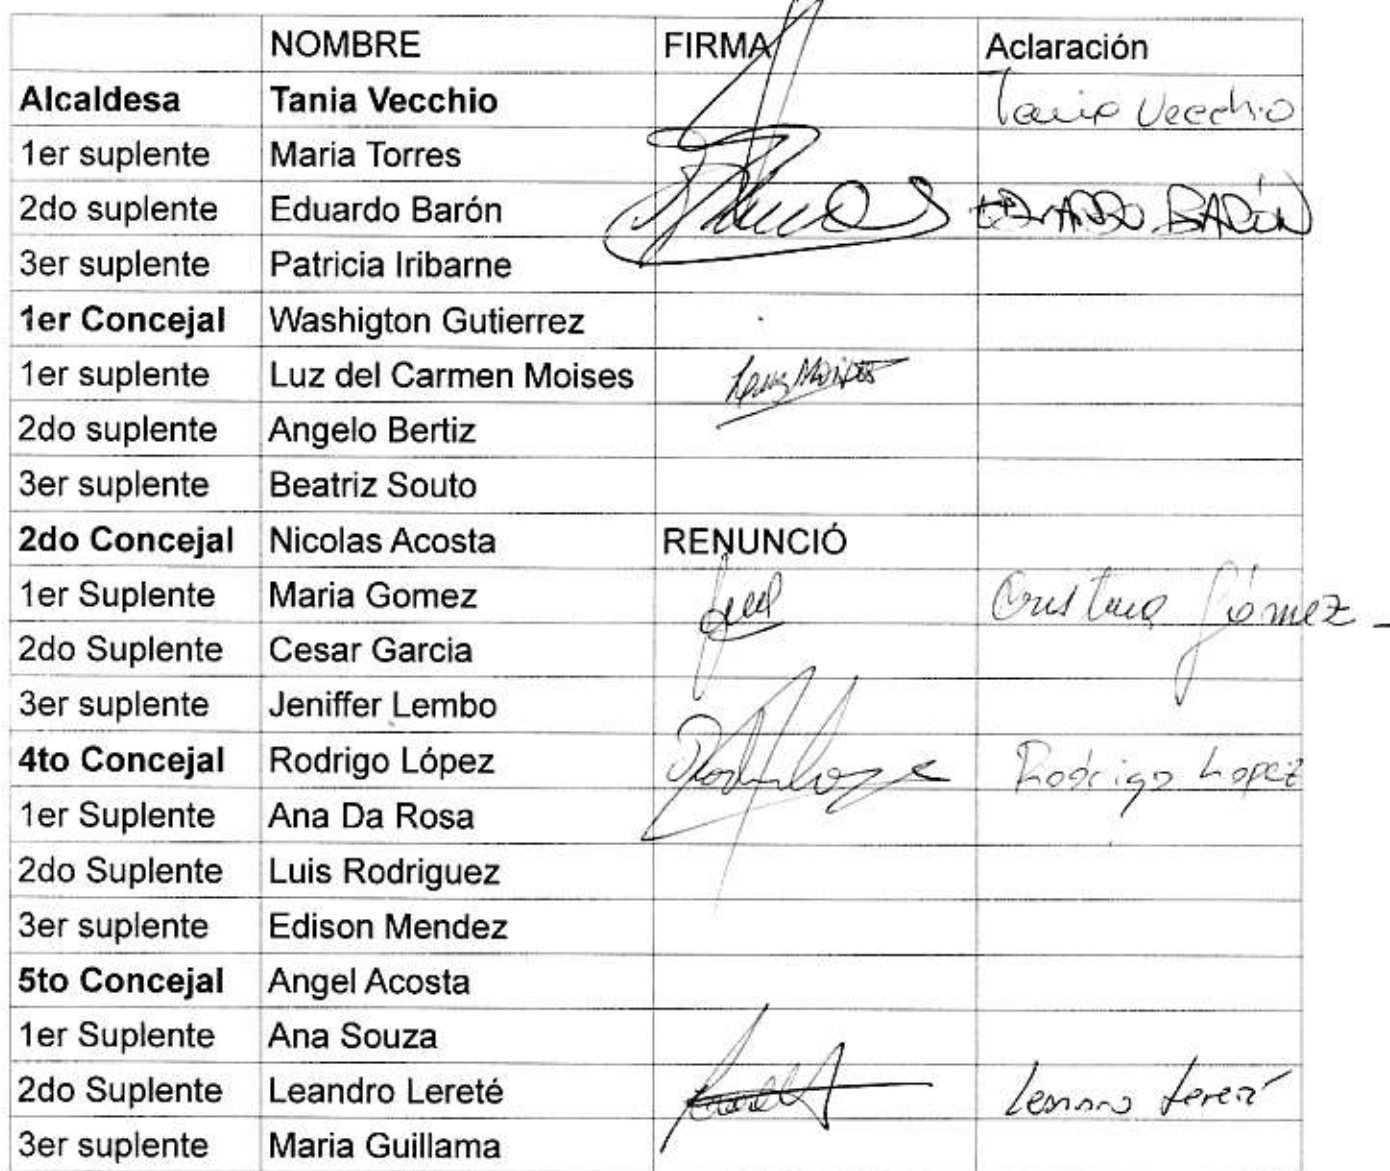 NOMBRE FIRMA Aclaración
Alcaldesa Tania Vecchio Tania Vecchio
1er suplente Maria Torres
2do suplente Eduardo Barón EDUARDO BARÓN
3er suplente Patricia Iribarne
1er Concejal Washigton Gutierrez
1er suplente Luz del Carmen Moises Luz Moises
2do suplente Angelo Bertiz
3er suplente Beatriz Souto
2do Concejal Nicolas Acosta RENUNCIÓ
1er Suplente Maria Gomez Cristina Gómez
2do Suplente Cesar Garcia
3er suplente Jeniffer Lembo
4to Concejal Rodrigo López Rodrigo Lopez
1er Suplente Ana Da Rosa
2do Suplente Luis Rodriguez
3er suplente Edison Mendez
5to Concejal Angel Acosta
1er Suplente Ana Souza
2do Suplente Leandro Lereté
3er suplente Maria Guillama